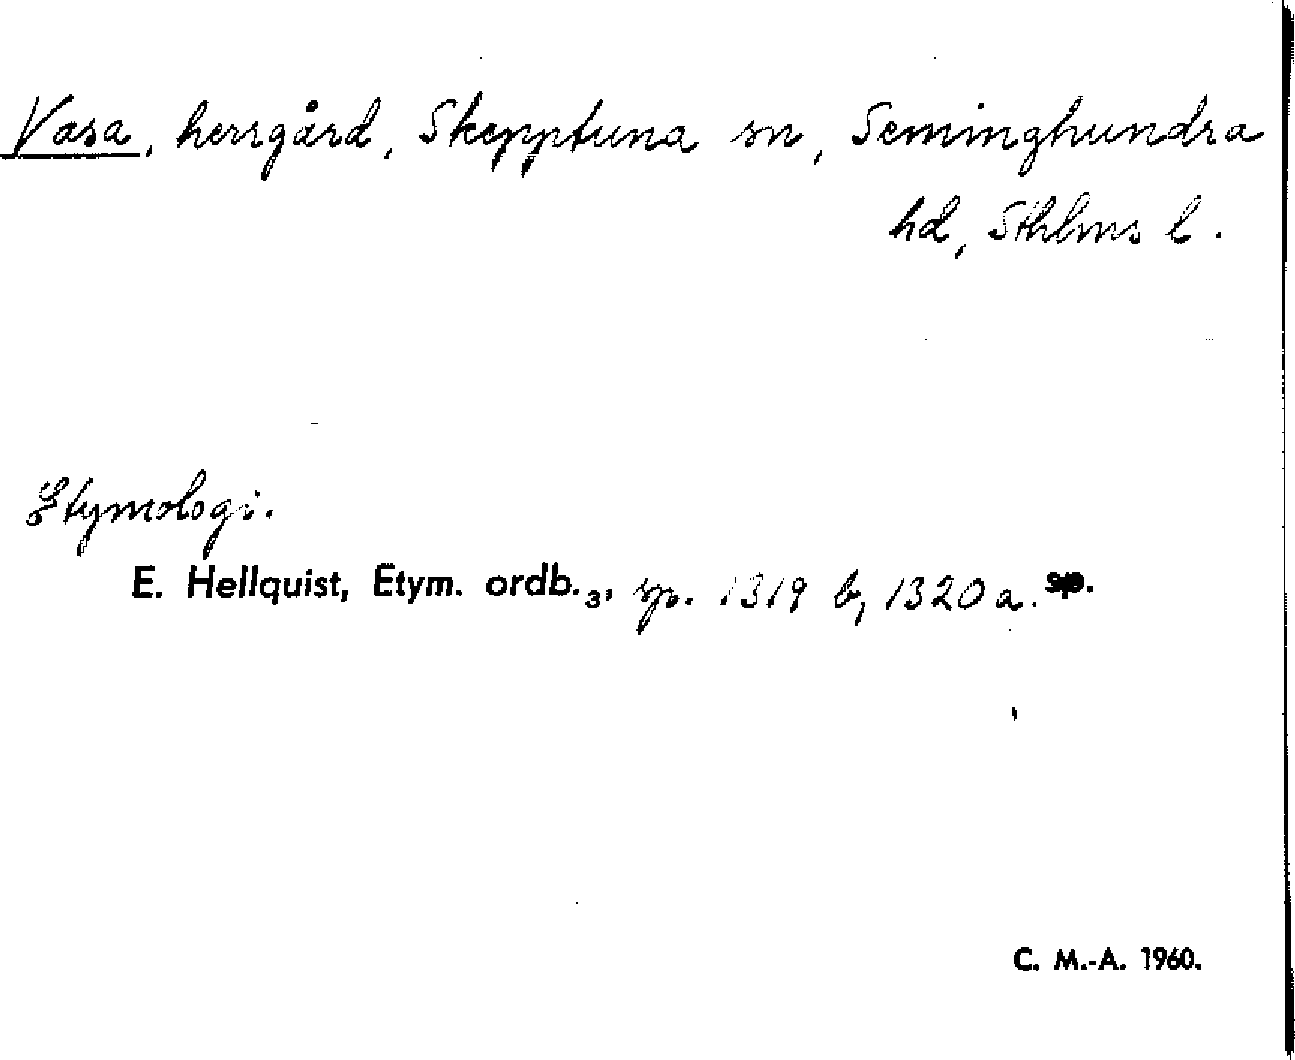 Vasa, herrgård, Skepptuna sn, Seminghundra
hd, Sthlms l.
Etymologi.
E. Hellquist, Etym. ordb.₃, sp. 1319 b, 1320 a. sp.
C. M.-A. 1960.